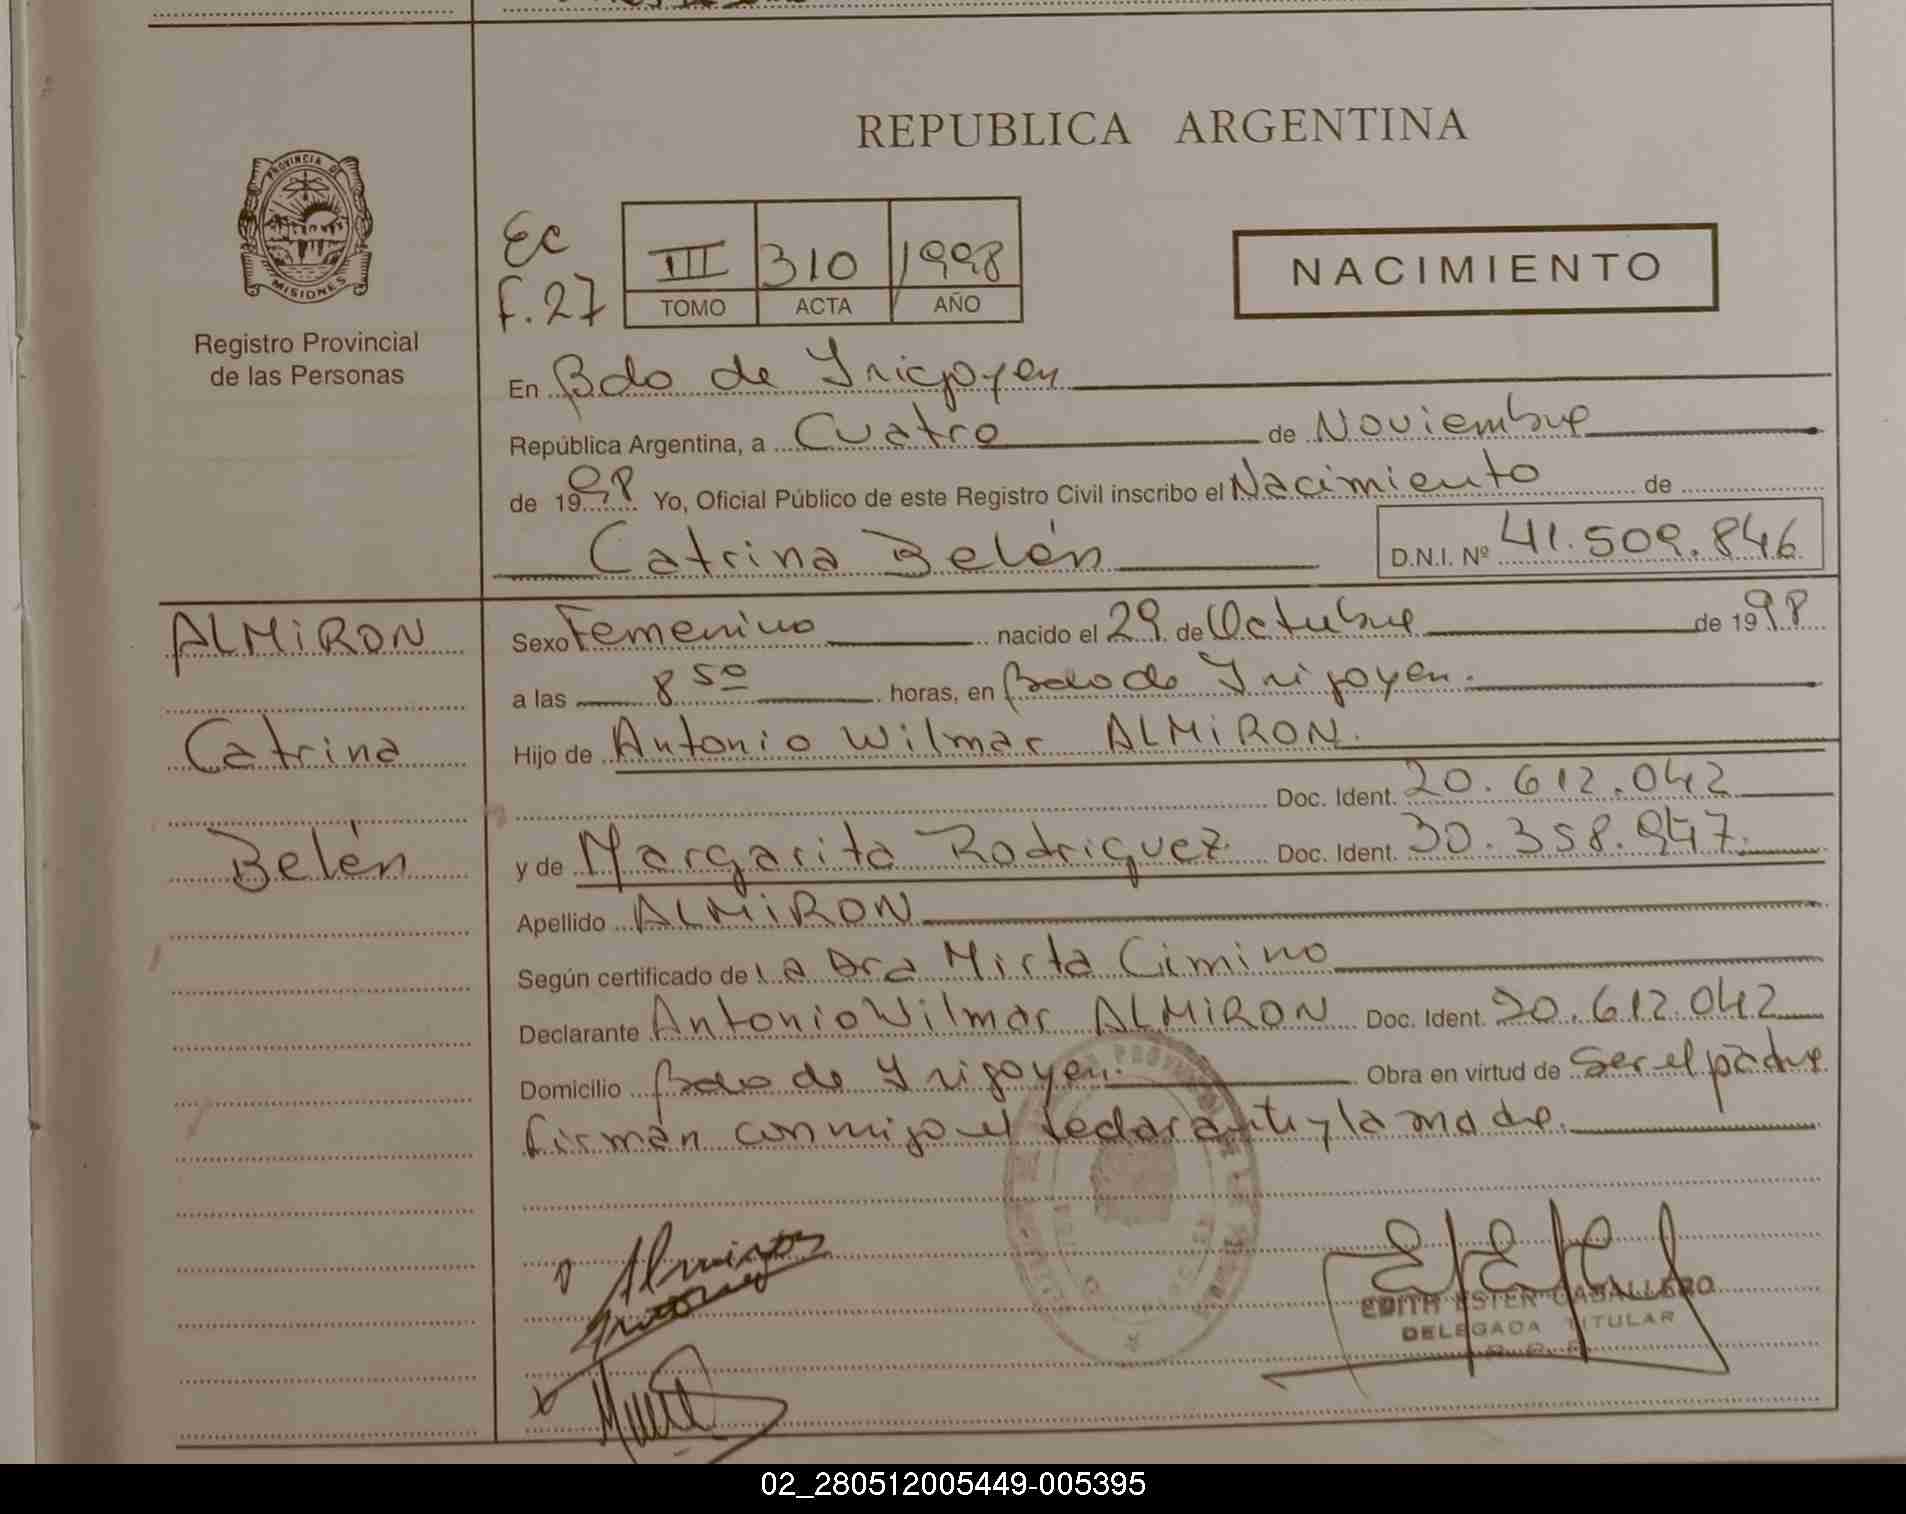 REPUBLICA ARGENTINA
PROVINCIA DE
MISIONES
Registro Provincial
de las Personas
Ec
F.27
III 310 1998
TOMO ACTA AÑO
NACIMIENTO
En Bdo de Irigoyen
República Argentina, a Cuatro de Noviembre
de 1998 Yo, Oficial Público de este Registro Civil inscribo el Nacimiento de
Catrina Belén D.N.I. Nº 41.509.846
ALMiRON
Catrina
Belén
Sexo Femenino nacido el 29 de Octubre de 1998
a las 8 50 horas, en Bdo de Irigoyen.
Hijo de Antonio Wilmar ALMiRON.
Doc. Ident. 20.612.042
y de Margarita Rodriguez Doc. Ident. 30.358.947.
Apellido ALMiRON
Según certificado de la Dra Mirta Cimino
Declarante Antonio Wilmar ALMiRON Doc. Ident. 20.612.042
Domicilio Bdo de Irigoyen. Obra en virtud de Ser el padre
firman conmigo el declarante y la madre.
EDITH ESTER CABALLERO
DELEGADA TITULAR
02_280512005449-005395